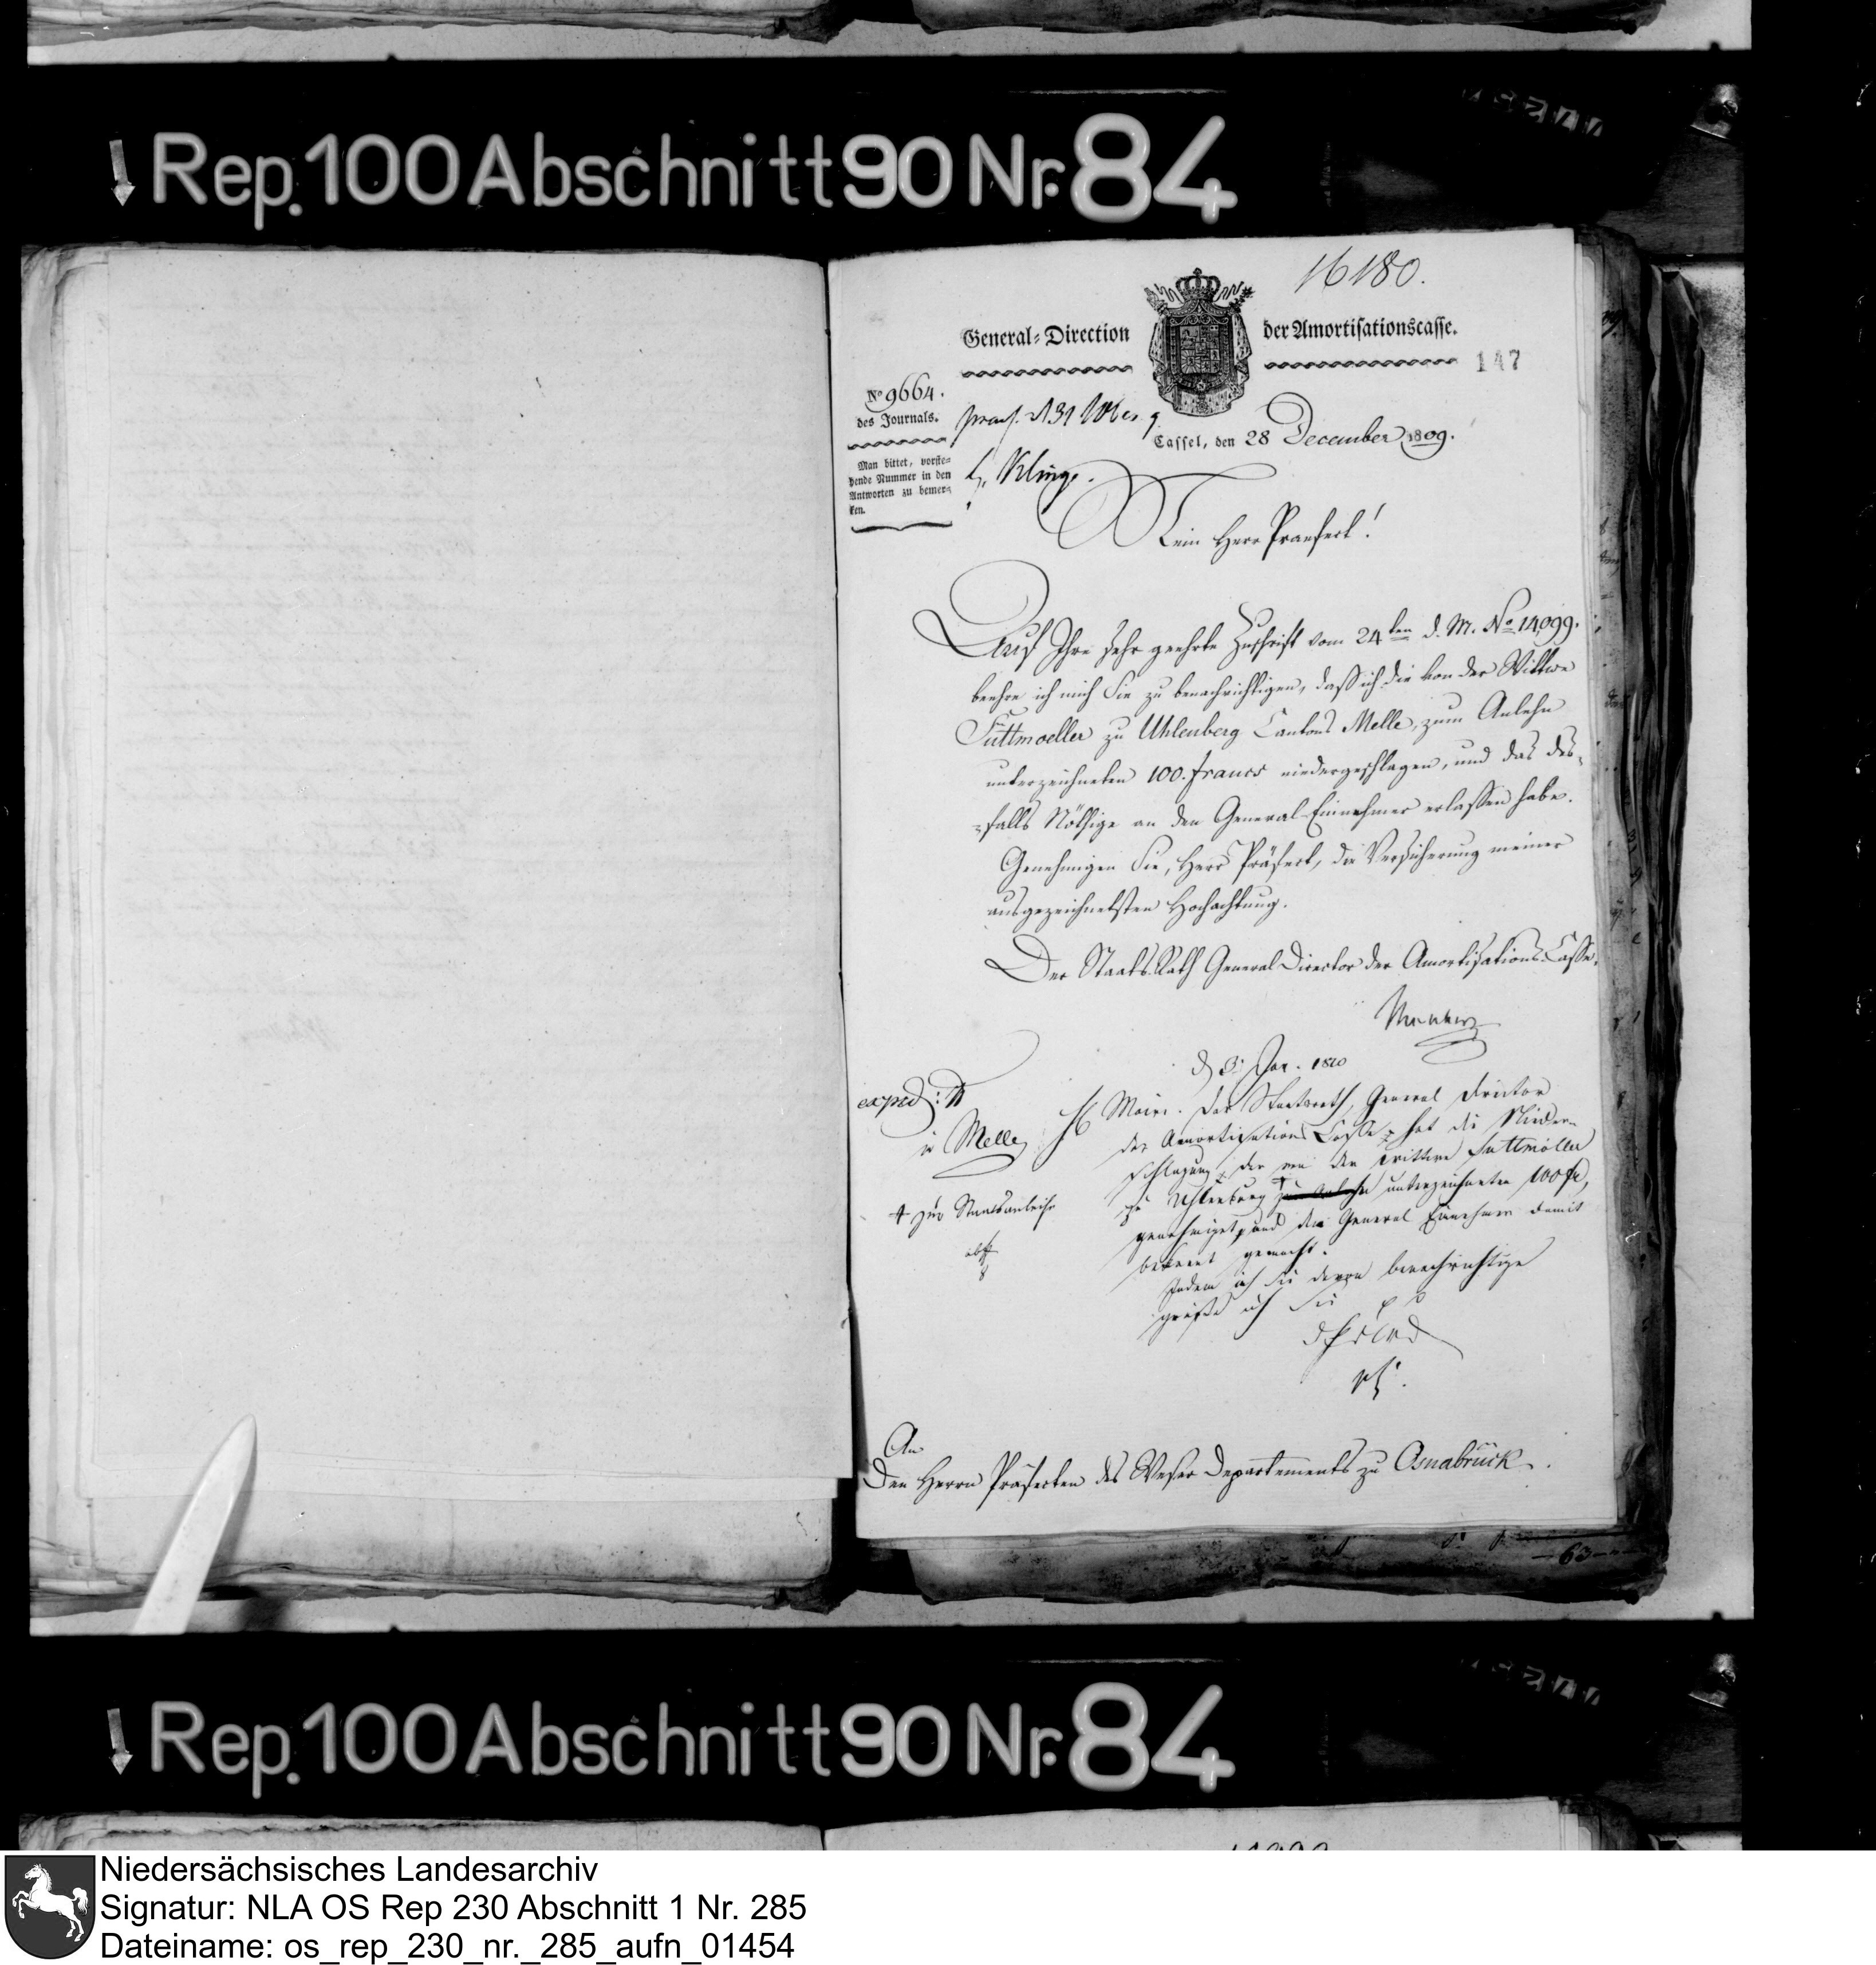 Rep. 100 Abschnitt 90 Nr. 84
16180.
General-Direction der Amortisationscasse.
147
No 9664.
des Journals.
Man bittet, vorste-
hende Nummer in den
Antworten zu bemer-
ken.
praes. d 31 Xbr. 9
H. Kling.
Cassel, den 28 December 1809.
Mein Herr Praefect!
Auf Ihre sehr geehrte Zuschrift vom 24ten d. M. No. 14,099.
beehre ich mich Sie zu benachrichtigen, daß ich die von der Wittwe
Füttmoeller zu Uhlenberg Cantons Melle, zum Anlehn
unterzeichneten 100. francs niedergeschlagen, und das des-
=falls Nöthige an den General-Einnehmer erlassen habe.
Genehmigen Sie, Herr Präfect, die Versicherung meiner
ausgezeichnetsten Hochachtung.
Der Staats-Rath General Director der Amortisations-Casse.
d 3. Jan. 1810
exped:
in Melle
H Maire. Der Staatsrath, General Director
der Amortisations Casse hat die Nieder-
schlagung, der von der Wittwe Futtmöller
zu Uhlenberg zum Anlehn unterzeichneten 100 fr,
genehmiget, und den General Einnehmer damit
bekannt gemacht.
Indem ich Sie davon benachrichtige
grüße ich Sie p p
† zur Staatsanleihe
An
Den Herrn Präfecten des Weser Departements zu Osnabrück.
63
Rep. 100 Abschnitt 90 Nr. 84
Niedersächsisches Landesarchiv
Signatur: NLA OS Rep 230 Abschnitt 1 Nr. 285
Dateiname: os_rep_230_nr._285_aufn_01454